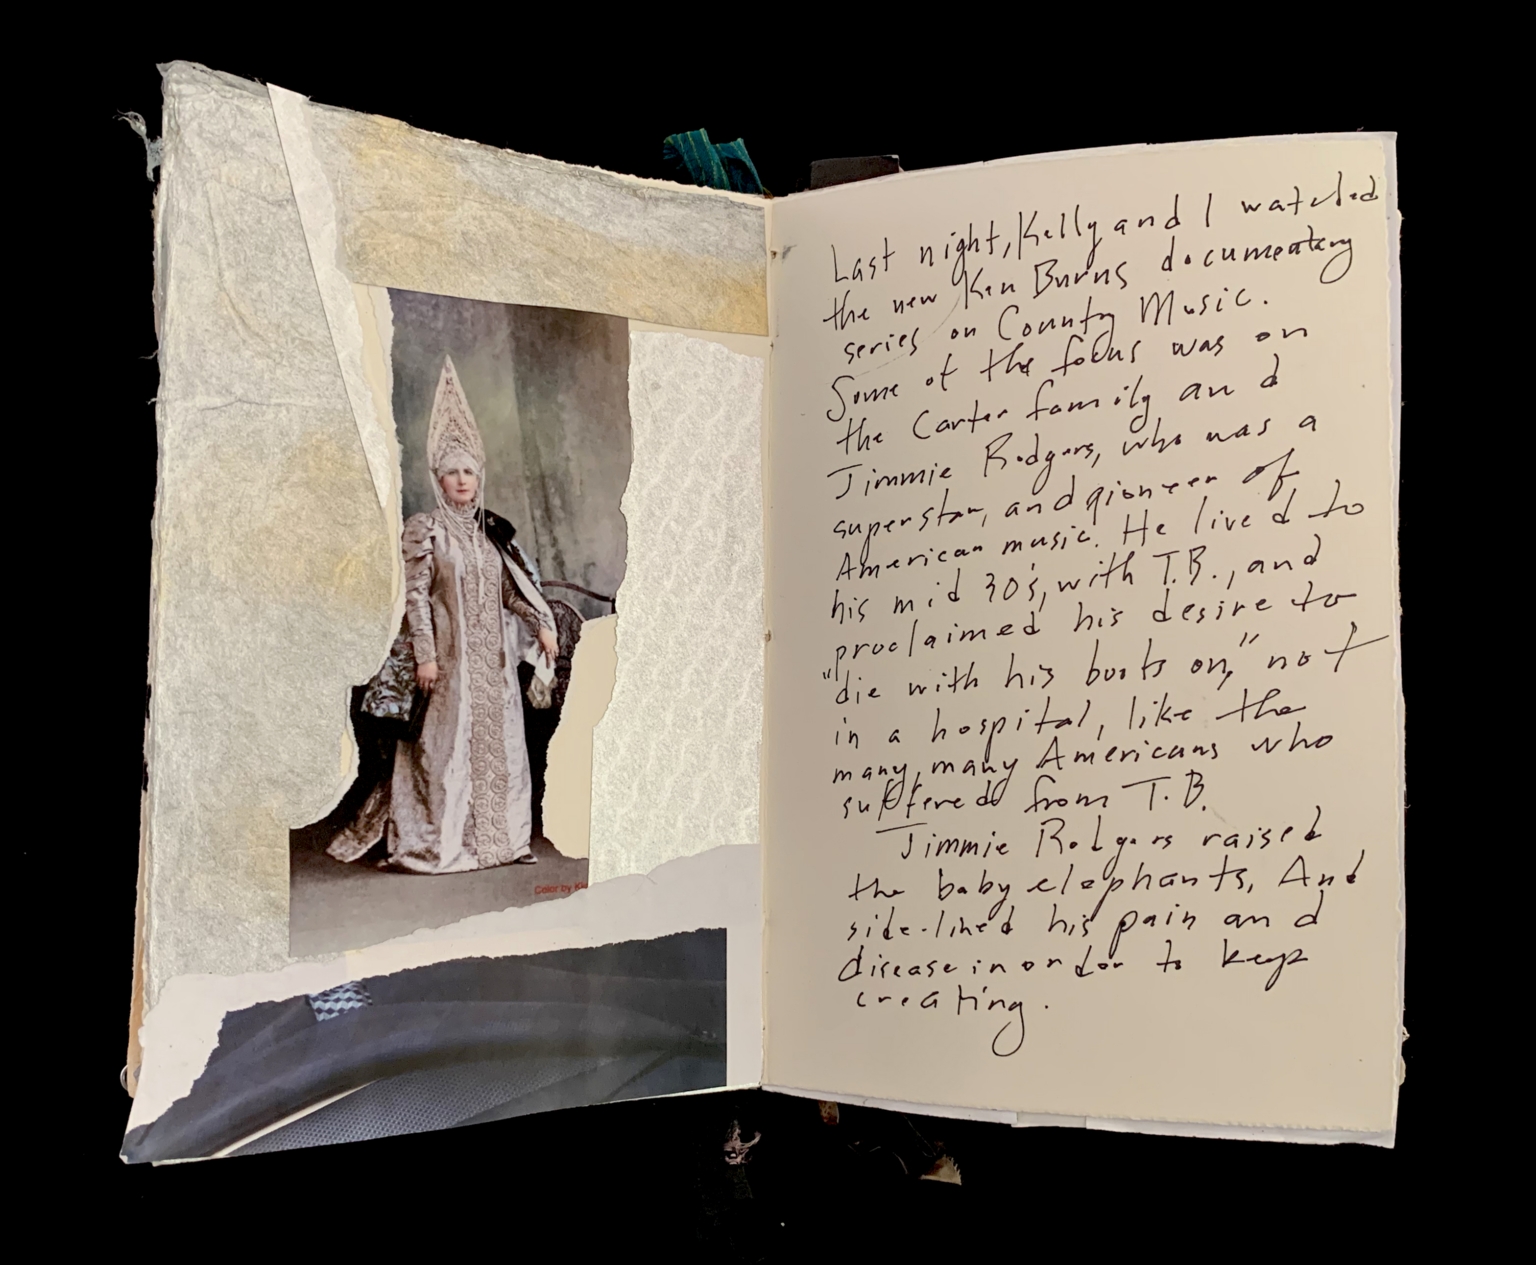 Color by Kl
Last night, Kelly and I watched
the new Ken Burns documentary
series on Country Music.
Some of the focus was on
the Carter family and
Jimmie Rodgers, who was a
superstar, and pioneer of
American music. He lived to
his mid 30's, with T.B., and
proclaimed his desire to
"die with his boots on," not
in a hospital, like the
many, many Americans who
suffered from T.B.
Jimmie Rodgers raised
the baby elephants, And
side-lined his pain and
disease in order to keep
creating.